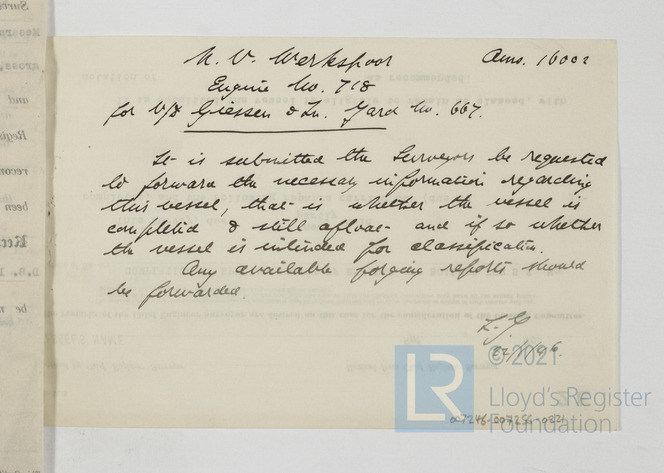 N. V. Werkspoor Ams. 16002
Engine No. 718
for V/s Giessen & Zn. Yard No. 667.
It is submitted the Surveyors be requested
to forward the necessary information regarding
this vessel, that is whether the vessel is
completed & still afloat and if so whether
the vessel is intended for classification.
Any available forging reports should
be forwarded.
© 2021
LR
Lloyd's Register
Foundation
007246-007255-0321